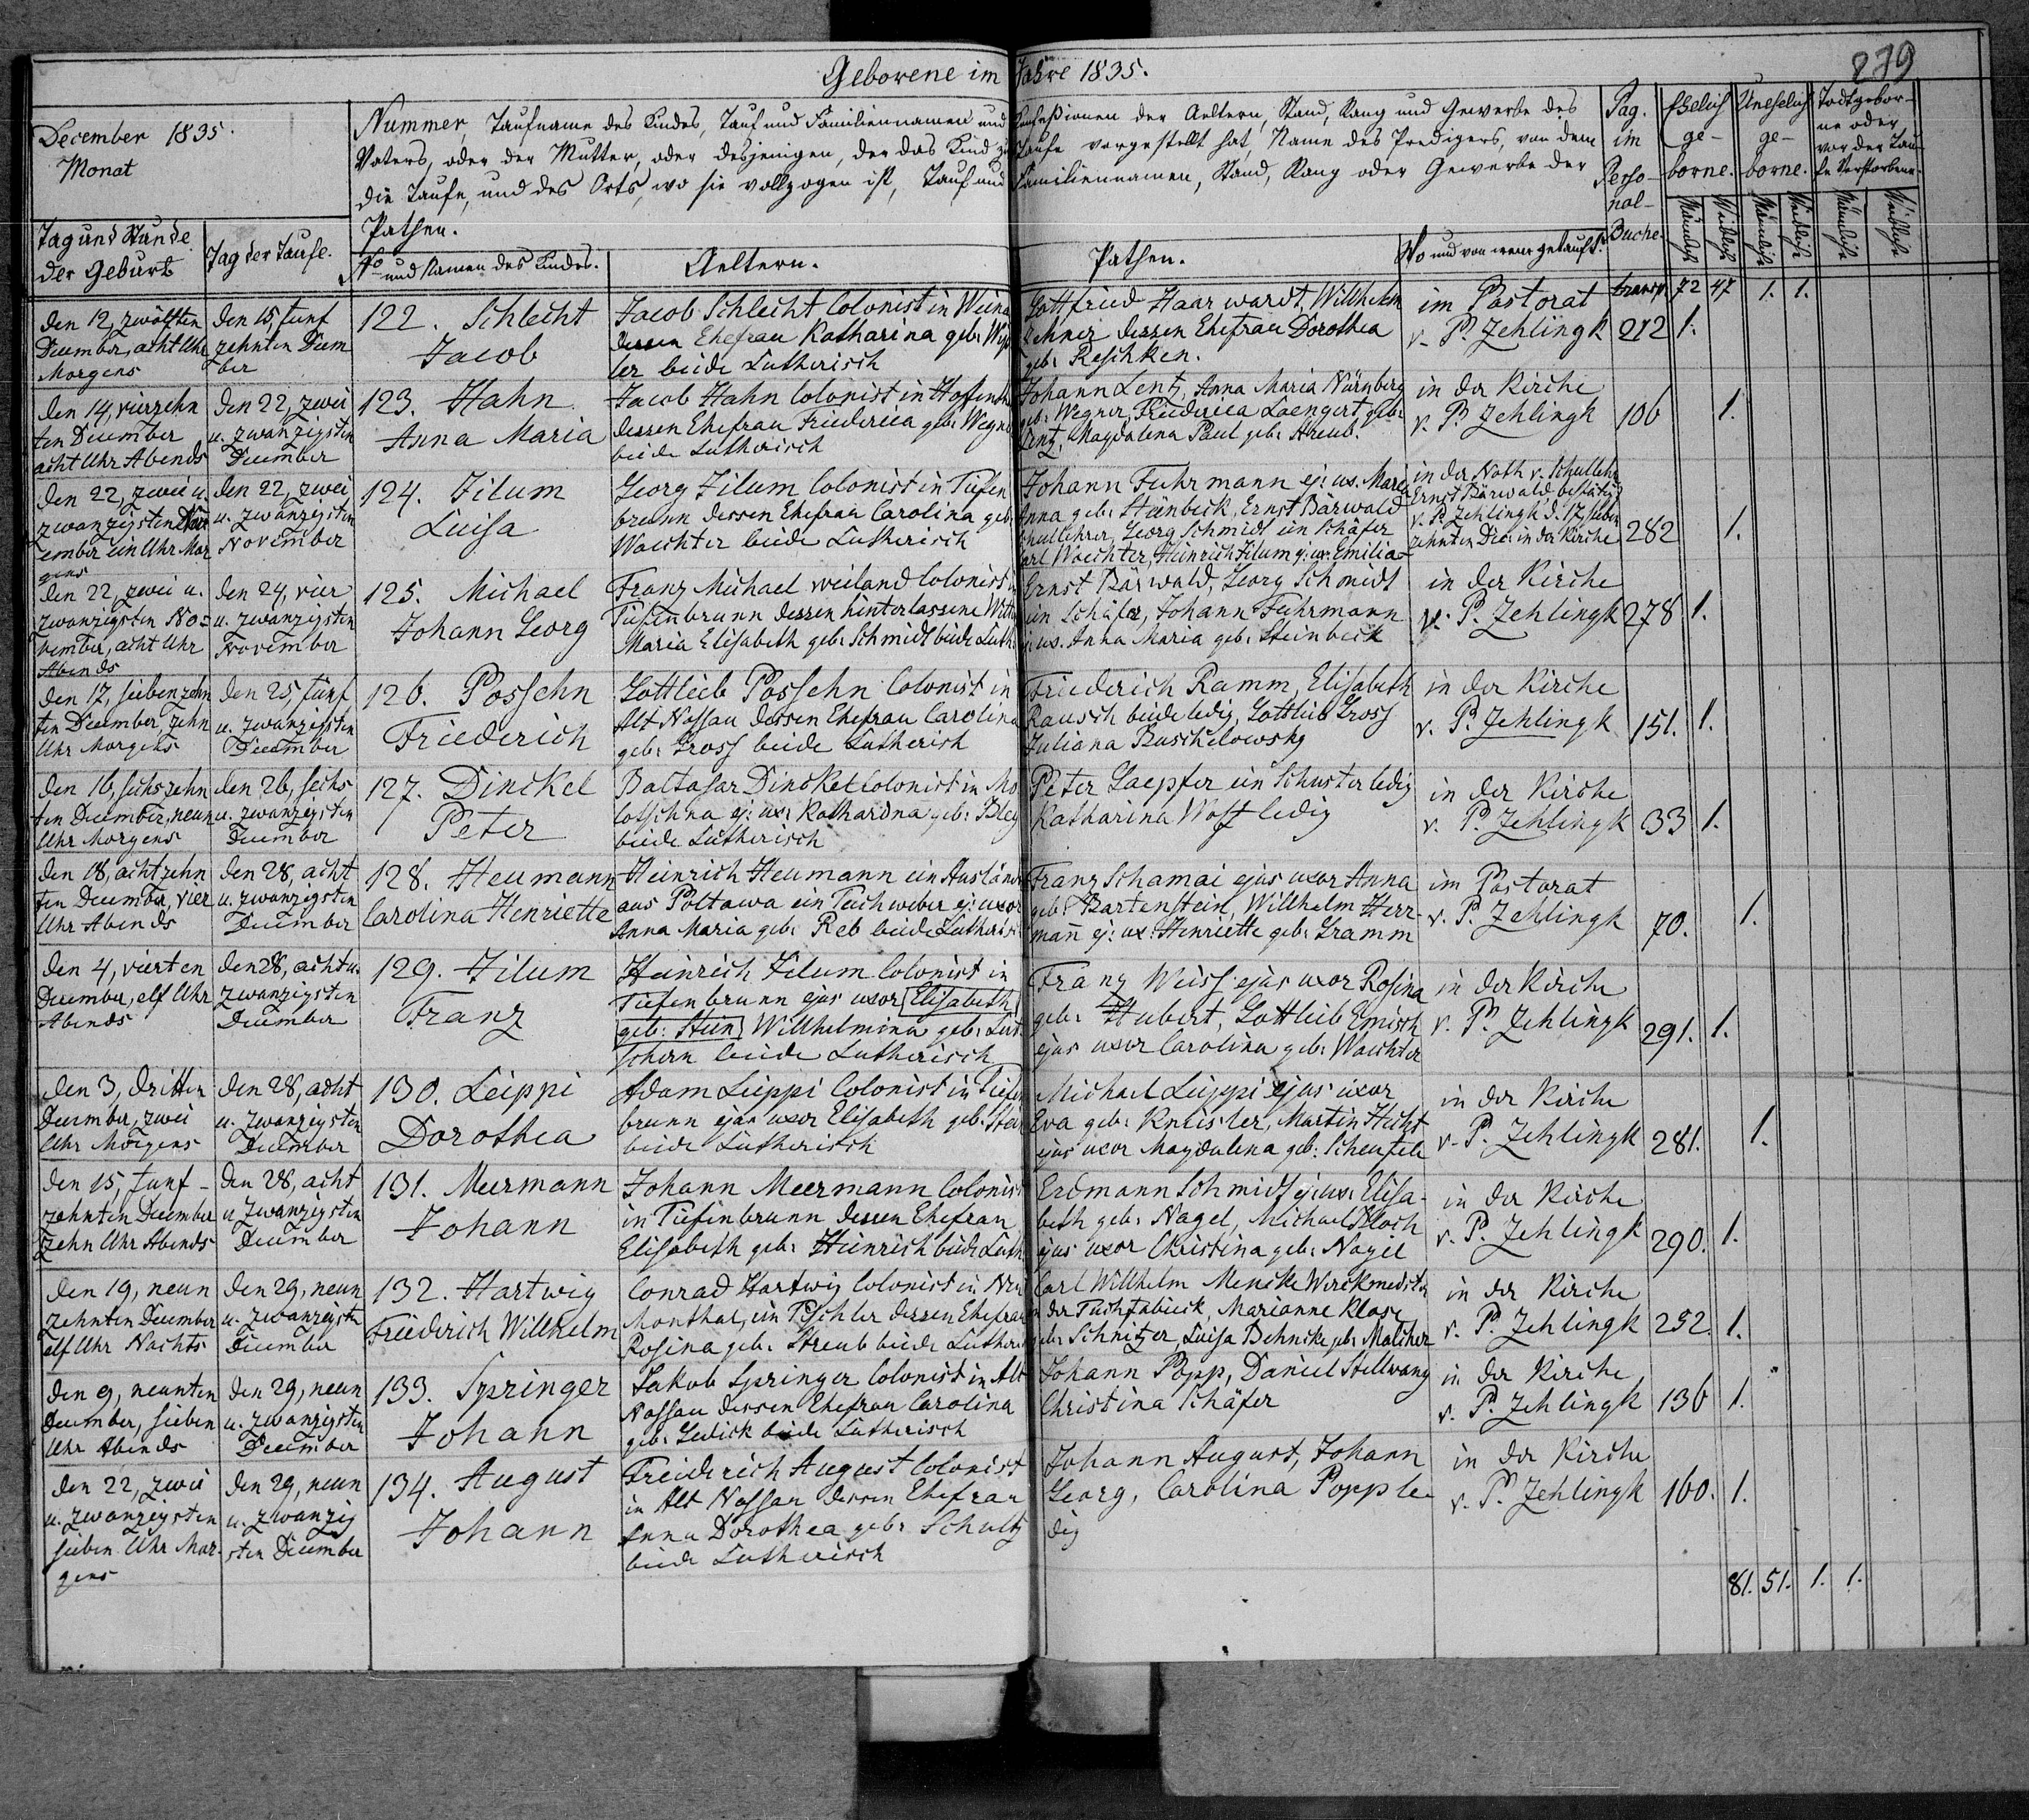 Geborene im Jahre 1835.
279
December 1835.
Monat
Nummer, Taufname des Kindes, Tauf und Familiennamen und Confeßionen der Aeltern, Stand, Rang und Gewerbe des
Vaters, oder der Mutter, oder desjenigen, der das Kind zur Taufe vorgestellt hat, Name des Predigers, von dem
die Taufe, und des Orts, wo sie vollzogen ist, Tauf und Familiennamen, Stand, Rang oder Gewerbe der
Pathen.
Pag.
im
Perso-
nal-
Buche.
Ehelich
ge-
borne.
Unehelich
ge-
borne.
Todtgebor-
ne oder
vor der Tau-
fe Verstorbene.
Tag und Stunde
der Geburt
Tag der Taufe.
No und Namen des Kindes.
Aeltern.
Pathen.
Wo und von wem getauft.
Männlich Weiblich Männlich Weiblich Männliche Weibliche
transp 72 47 1. 1.
den 12, zwölften
December, acht Uhr
Morgens
den 15, funf
zehnten Decem
ber
122. Schlecht
Jacob
Jacob Schlecht Colonist in Weina
dessen Ehefrau Katharina geb:
ler beide Lutherisch
Gottfried Haarwardt, Willhelm
Zehner dessen Ehefrau Dorothea
geb: Reschken.
im Pastorat
v. P. Zehlingk
212 1.
den 14, vierzehn
ten December
acht Uhr Abends
den 22, zwei
u. zwanzigsten
December
123. Hahn
Anna Maria
Jacob Hahn Colonist in Hoffenth
dessen Ehefrau Friederica geb: Wegne
beide Lutherisch
Johann Lentz, Anna Maria Nürnberg
geb: Wegner, Friederica Laengert, geb:
Lentz, Magdalena Paul geb: Streub.
in der Kirche
v. P. Zehlingk
106 1.
den 22, zwei u.
zwanzigsten Nov
ember ein Uhr Mor
gens
den 22, zwei
u. zwanzigsten
November
124. Filum
Luisa
Georg Filum Colonist in Tiefen
brunn dessen Ehefrau Carolina geb:
Waechter beide Lutherisch
Johann Fuhrmann ej: ux. Maria
Anna geb: Steinbeck, Ernst Bärwald
Schullehrer, Georg Schmidt ein Schäfer
Carl Waechter, Heinrich Filum ej: ux. Emilia
in der Noth v. Schullehr
Ernst Bärwald, bestätigt
v. P. Zehlingk d. 17, sieben
zehnten Dec: in der Kirche
282 1.
den 22, zwei u.
zwanzigsten No=
vember, acht Uhr
Abends
den 24, vier
u. zwanzigsten
November
125. Michael
Johann Georg
Franz Michael weiland Colonist in
Tiefenbrunn dessen hinterlassene Witt
Maria Elisabeth geb: Schmidt beide Luth:
Ernst Bärwald, Georg Schmidt
ein Schäfer, Johann Fuhrmann
ej: ux. Anna Maria geb: Steinbeck
in der Kirche
v. P. Zehlingk
278 1.
den 17, siebenzehn
ten December zehn
Uhr Morgens
den 25, fünf
u. zwanzigsten
December
126. Possehn
Friederich
Gottlieb Possehn Colonist in
Alt Nassau dessen Ehefrau Carolina
geb: Gross beide Lutherisch
Friederich Ramm, Elisabeth
Rausch beide ledig, Gottlieb Gross
Juliana Buschelowsky
in der Kirche
v. P. Zehlingk
151. 1.
den 16, sechszehn
ten December, neun
Uhr Morgens
den 26, sechs
u. zwanzigsten
December
127. Dinckel
Peter
Baltasar Dinckel Colonist in Mo
lotschna ej: ux: Katharina geb: Bley
beide Lutherisch
Peter Laepfer ein Schuster ledig
Katharina Wolf ledig
in der Kirche
v. P. Zehlingk
33 1.
den 18, achtzehn
ten December, vier
Uhr Abends
den 28, acht
u. zwanzigsten
December
128. Heumann
Carolina Henriette
Heinrich Heumann ein Ausländ
aus Poltawa ein Tuchweber ej: uxor
Anna Maria geb: Reb beide Lutheris
Franz Schamai ejus uxor Anna
geb: Bartenstein, Willhelm Herr-
mañ ej: ux: Henriette geb: Gramm
im Pastorat
v. P. Zehlingk
70. 1.
den 4, vierten
December, elf Uhr
Abends
den 28, acht u.
zwanzigsten
December
129. Filum
Franz
Heinrich Filum Colonist in
Tiefenbrunn ejus uxor Elisabeth
geb: Stein Willhelmina geb: Lut
schern beide Lutherisch
Franz Weiss ejus uxor Rosina
geb: Hubert, Gottlieb Emisch
ejus uxor Carolina geb: Waechter
in der Kirche
v. P. Zehlingk
291. 1.
den 3, dritten
December, zwei
Uhr Morgens
den 28, acht
u. zwanzigsten
December
130. Leippi
Dorothea
Adam Leippi Colonist in Tiefen
brunn ejus uxor Elisabeth geb: Stein
beide Lutherisch
Michael Leippi ejus uxor
Eva geb: Kneisler, Martin Hecht
ejus uxor Magdalena geb: Scheufele
in der Kirche
v. P. Zehlingk
281. 1.
den 15, funf-
zehnten December
zehn Uhr Abends
den 28, acht
u. zwanzigsten
December
131. Meermann
Johann
Johann Meermann Colonist
in Tiefenbrunn dessen Ehefrau
Elisabeth geb: Heinrich beide Luth
Erdmann Schmidt ej: ux: Elisa-
beth geb: Nagel, Michael Bloch
ejus uxor Christina geb: Nagel
in der Kirche
v. P. Zehlingk
290. 1.
den 19, neun
zehnten December
elf Uhr Nachts
den 29, neun
u. zwanzigste
December
132. Hartwig
Friederich Willhelm
Conrad Hartwig Colonist in Neu
Monthal, ein Tischler dessen Ehefrau
Rosina geb: Streub beide Lutheris
Carl Willhelm Mencke Werckmeister
in der Tuchfabrick, Marianne Klose
geb: Schnitzer, Luisa Behncke geb: Malcher
in der Kirche
v. P. Zehlingk
252. 1.
den 9, neunten
December, sieben
Uhr Abends
den 29, neun
u. zwanzigsten
December
133. Springer
Johann
Jakob Springer Colonist in Alt
Nassau dessen Ehefrau Carolina
geb: Gedick beide Lutherisch
Johann Popp, Daniel Stellwang
Christina Schäfer
in der Kirche
v. P. Zehlingk
136 1.
den 22, zwei
u. zwanzigsten
sieben Uhr Mor-
gens
den 29, neun
u. zwanzig
sten December
134. August
Johann
Freiderich August Colonist
in Alt Nassau dessen Ehefrau
Anna Dorothea geb: Schultz
beide Lutherisch
Johann August, Johann
Georg, Carolina Popp le-
dig
in der Kirche
v. P. Zehlingk
160. 1.
81. 51. 1. 1.